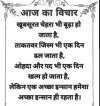 आज का विचार
खूबसूरत चेहरा भी बूढ़ा हो
जाता है,
ताकतवर जिस्म भी एक दिन
ढल जाता है,
ओहदा और पद भी एक दिन
खत्म हो जाता है,
लेकिन एक अच्छा इन्सान हमेशा
अच्छा इन्सान ही रहता है।